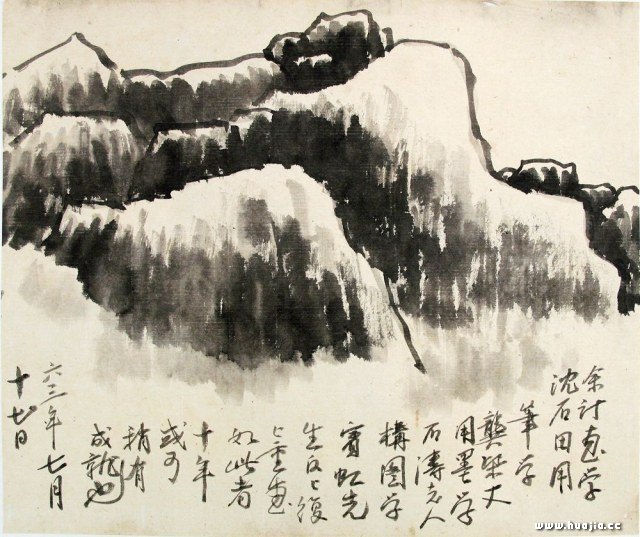 余计画学
沈石田用
筆学
龔柴丈
用墨学
石濤老人
構图学
賓虹先
生復
重画
如此者
十年
或可
稍有
成就也
六三年七月
十七日
www.huajia.cc